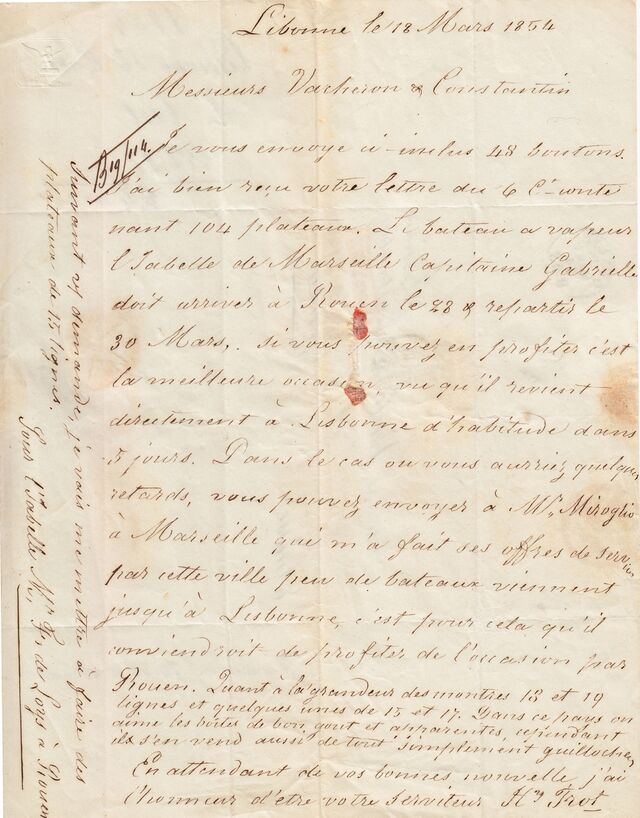 Lisbonne le 18 Mars 1854
Messieurs Vacheron & Constantin
Je vous envoye ci-inclus 48 boutons.
J'ai bien reçu votre lettre du 6 Ct- conte
nant 104 plateaux. Le bateau a vapeur
l'Isabelle de Marseille Capitaine Gabrielle
doit arriver à Rouen le 28 & repartir le
30 Mars, si vous pouvez en profiter c'est
la meilleure occasion, vu qu'il revient
directement à Lisbonne d'habitude dans
5 jours. Dans le cas ou vous auriez quelques
retards, vous pouvez envoyer à Mr. Miroglio
à Marseille qui m'a fait ses offres de services
par cette ville peu de bateaux viennent
jusqu'à Lisbonne, c'est pour cela qu'il
conviendroit de profiter de l'occasion par
Rouen. Quant à la grandeur des montres 13 et 19
lignes et quelques unes de 15 et 17. Dans ce pays on
aime les boites de bon gout et apparentes, cependant
ils s'en vend aussi de tout simplement guillocher,
En attendant de vos bonnes nouvelle j'ai
l'honneur d'etre votre serviteur Hy Trot
B 19/114.
Suivant demande, je vais me mettre à faire des
plateaux de 15 lignes.
Sous l'Isabelle Mr. Fs. de Loys à Rouen